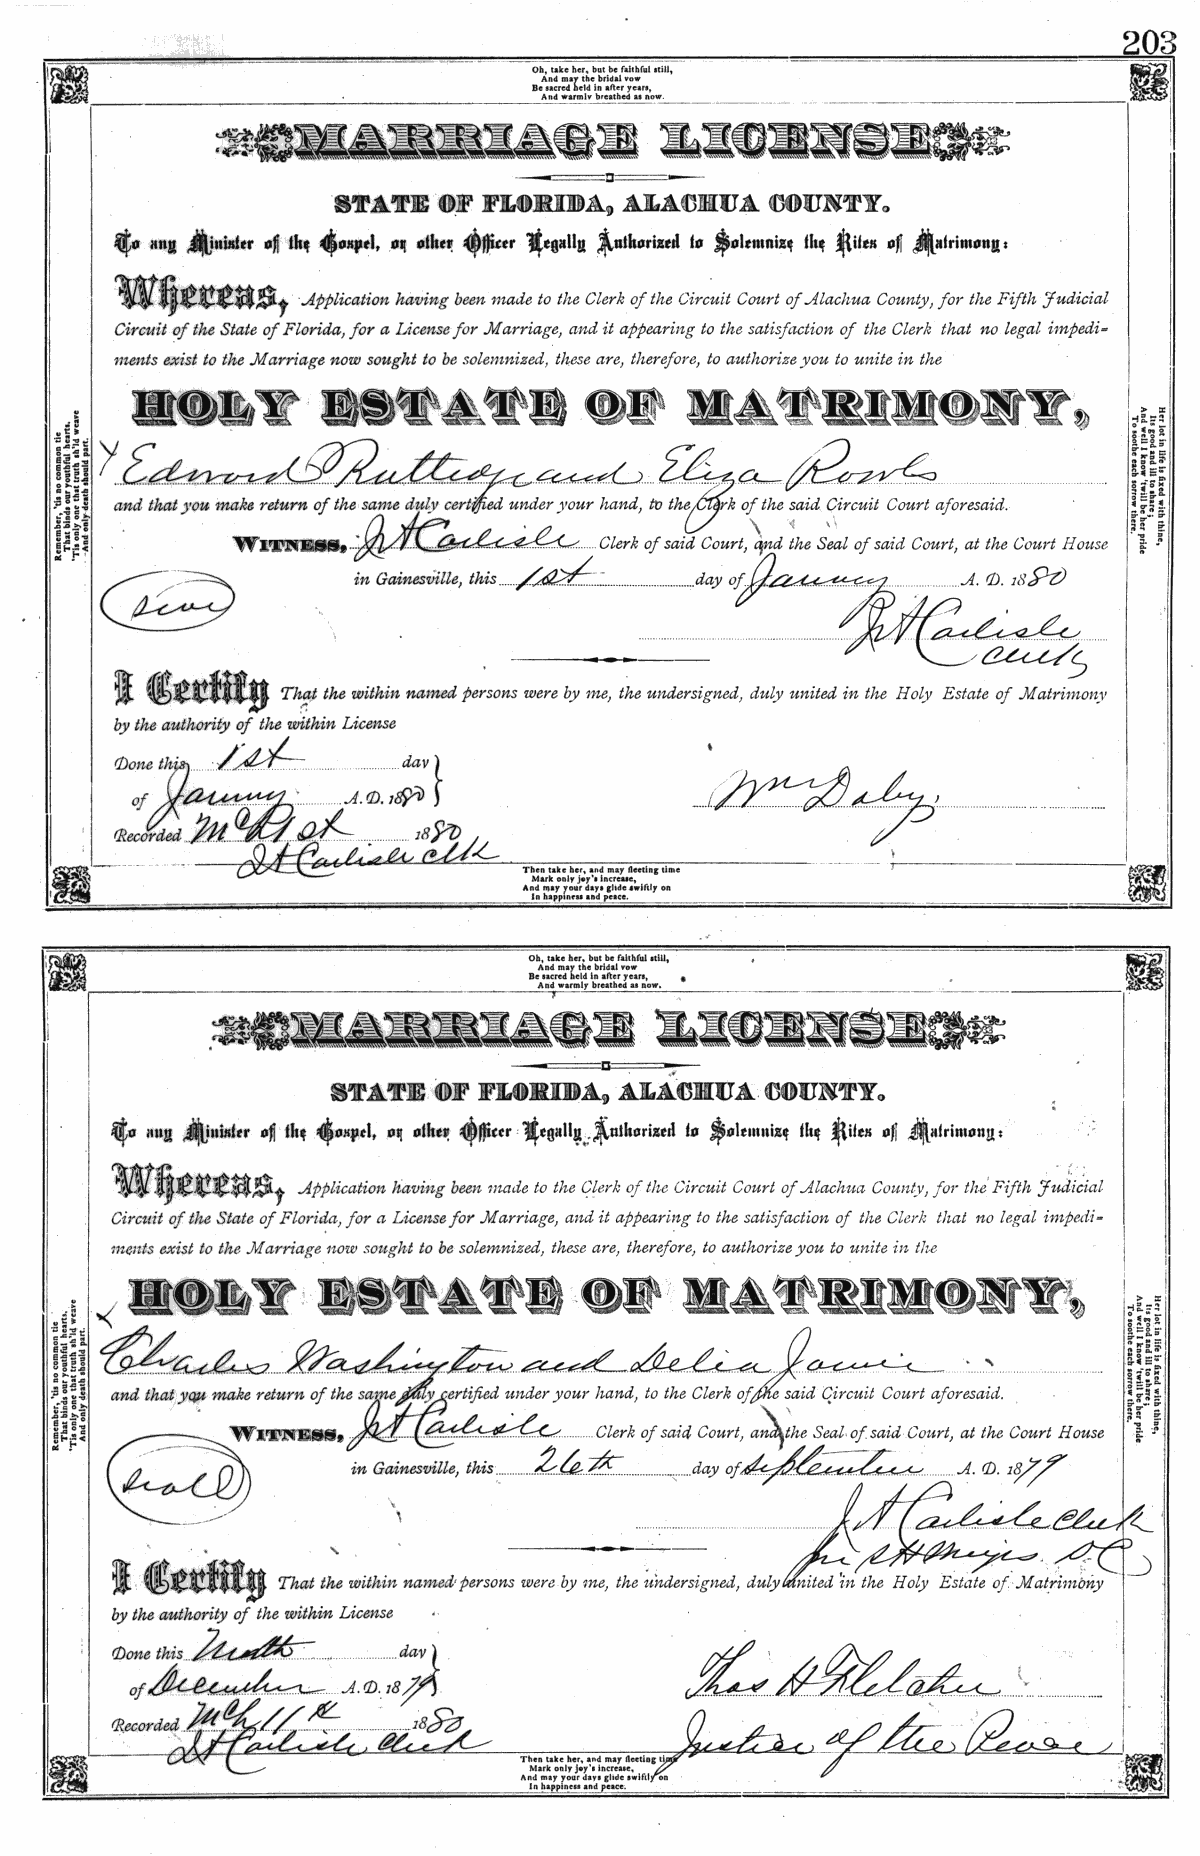 203
Oh, take her, but be faithful still,
And may the bridal vow
Be sacred held in after years,
And warmly breathed as now.
MARRIAGE LICENSE
STATE OF FLORIDA, ALACHUA COUNTY.
To any Minister of the Gospel, or other Officer Legally Authorized to Solemnize the Rites of Matrimony:
Whereas, Application having been made to the Clerk of the Circuit Court of Alachua County, for the Fifth Judicial
Circuit of the State of Florida, for a License for Marriage, and it appearing to the satisfaction of the Clerk that no legal impedi-
ments exist to the Marriage now sought to be solemnized, these are, therefore, to authorize you to unite in the
HOLY ESTATE OF MATRIMONY,
Edward and Eliza Rowls
and that you make return of the same duly certified under your hand, to the Clerk of the said Circuit Court aforesaid.
WITNESS, J A Carlisle Clerk of said Court, and the Seal of said Court, at the Court House
in Gainesville, this 1st day of January A. D. 1880
J A Carlisle
Clerk
I Certify That the within named persons were by me, the undersigned, duly united in the Holy Estate of Matrimony
by the authority of the within License
Done this 1st day
of January A. D. 1880
Wm Daby
Recorded Mch 1st 1880
J A Carlisle Clk
Remember, 'tis no common tie
That binds our youthful hearts,
'Tis only one that truth sh'ld weave
And only death should part.
Her lot in life is fixed with thine,
Its good and ill to share;
And well I know 'twill be her pride
To soothe each sorrow there.
Then take her, and may fleeting time
Mark only joy's increase,
And may your days glide swiftly on
In happiness and peace.
Oh, take her, but be faithful still,
And may the bridal vow
Be sacred held in after years,
And warmly breathed as now.
MARRIAGE LICENSE
STATE OF FLORIDA, ALACHUA COUNTY.
To any Minister of the Gospel, or other Officer Legally Authorized to Solemnize the Rites of Matrimony:
Whereas, Application having been made to the Clerk of the Circuit Court of Alachua County, for the Fifth Judicial
Circuit of the State of Florida, for a License for Marriage, and it appearing to the satisfaction of the Clerk that no legal impedi-
ments exist to the Marriage now sought to be solemnized, these are, therefore, to authorize you to unite in the
HOLY ESTATE OF MATRIMONY,
Charles Washington and Delia
and that you make return of the same duly certified under your hand, to the Clerk of the said Circuit Court aforesaid.
WITNESS, J A Carlisle Clerk of said Court, and the Seal of said Court, at the Court House
in Gainesville, this 26th day of September A. D. 1879
J A Carlisle Clerk
D C
I Certify That the within named persons were by me, the undersigned, duly united in the Holy Estate of Matrimony
by the authority of the within License
Done this day
of December A. D. 1879
Thos H Fletcher
Recorded Mch 11th 1880
J A Carlisle Clerk
Justice of the Peace
Remember, 'tis no common tie
That binds our youthful hearts,
'Tis only one that truth sh'ld weave
And only death should part.
Her lot in life is fixed with thine,
Its good and ill to share;
And well I know 'twill be her pride
To soothe each sorrow there.
Then take her, and may fleeting time
Mark only joy's increase,
And may your days glide swiftly on
In happiness and peace.